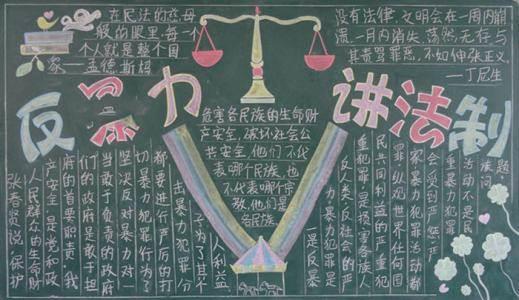 在民法的慈母
般的眼里,每一
个人就是整个国
家—孟德斯鸠
没有法律,文明会在一周内崩
溃,一月内消失,荡然无存与
其责骂罪恶,不如伸张正义,
—丁尼生
反暴力 讲法制
张春贤说 保护
人民群众的生命财
产安全是党和政
府的首要职责,我
们的政府是敢于担
当敢于负责的政府
坚决反对暴力对一
切暴力犯罪行为了
都要进行严厉的打
击暴力犯罪分
子为了其个
人利益
危害各民族的生命财
产安全,破坏社会公
共安全,他们不代
表哪个民族,也
不代表哪个宗
教,他们是
各民族
一是反暴
力,暴力犯罪是
反人类反社会的严
重犯罪,是损害各族人
民共同利益的严重犯
罪纵观世界任何国
家暴力犯罪活动都
会受到严惩,严
重暴力犯罪
活动不是民
族问
题